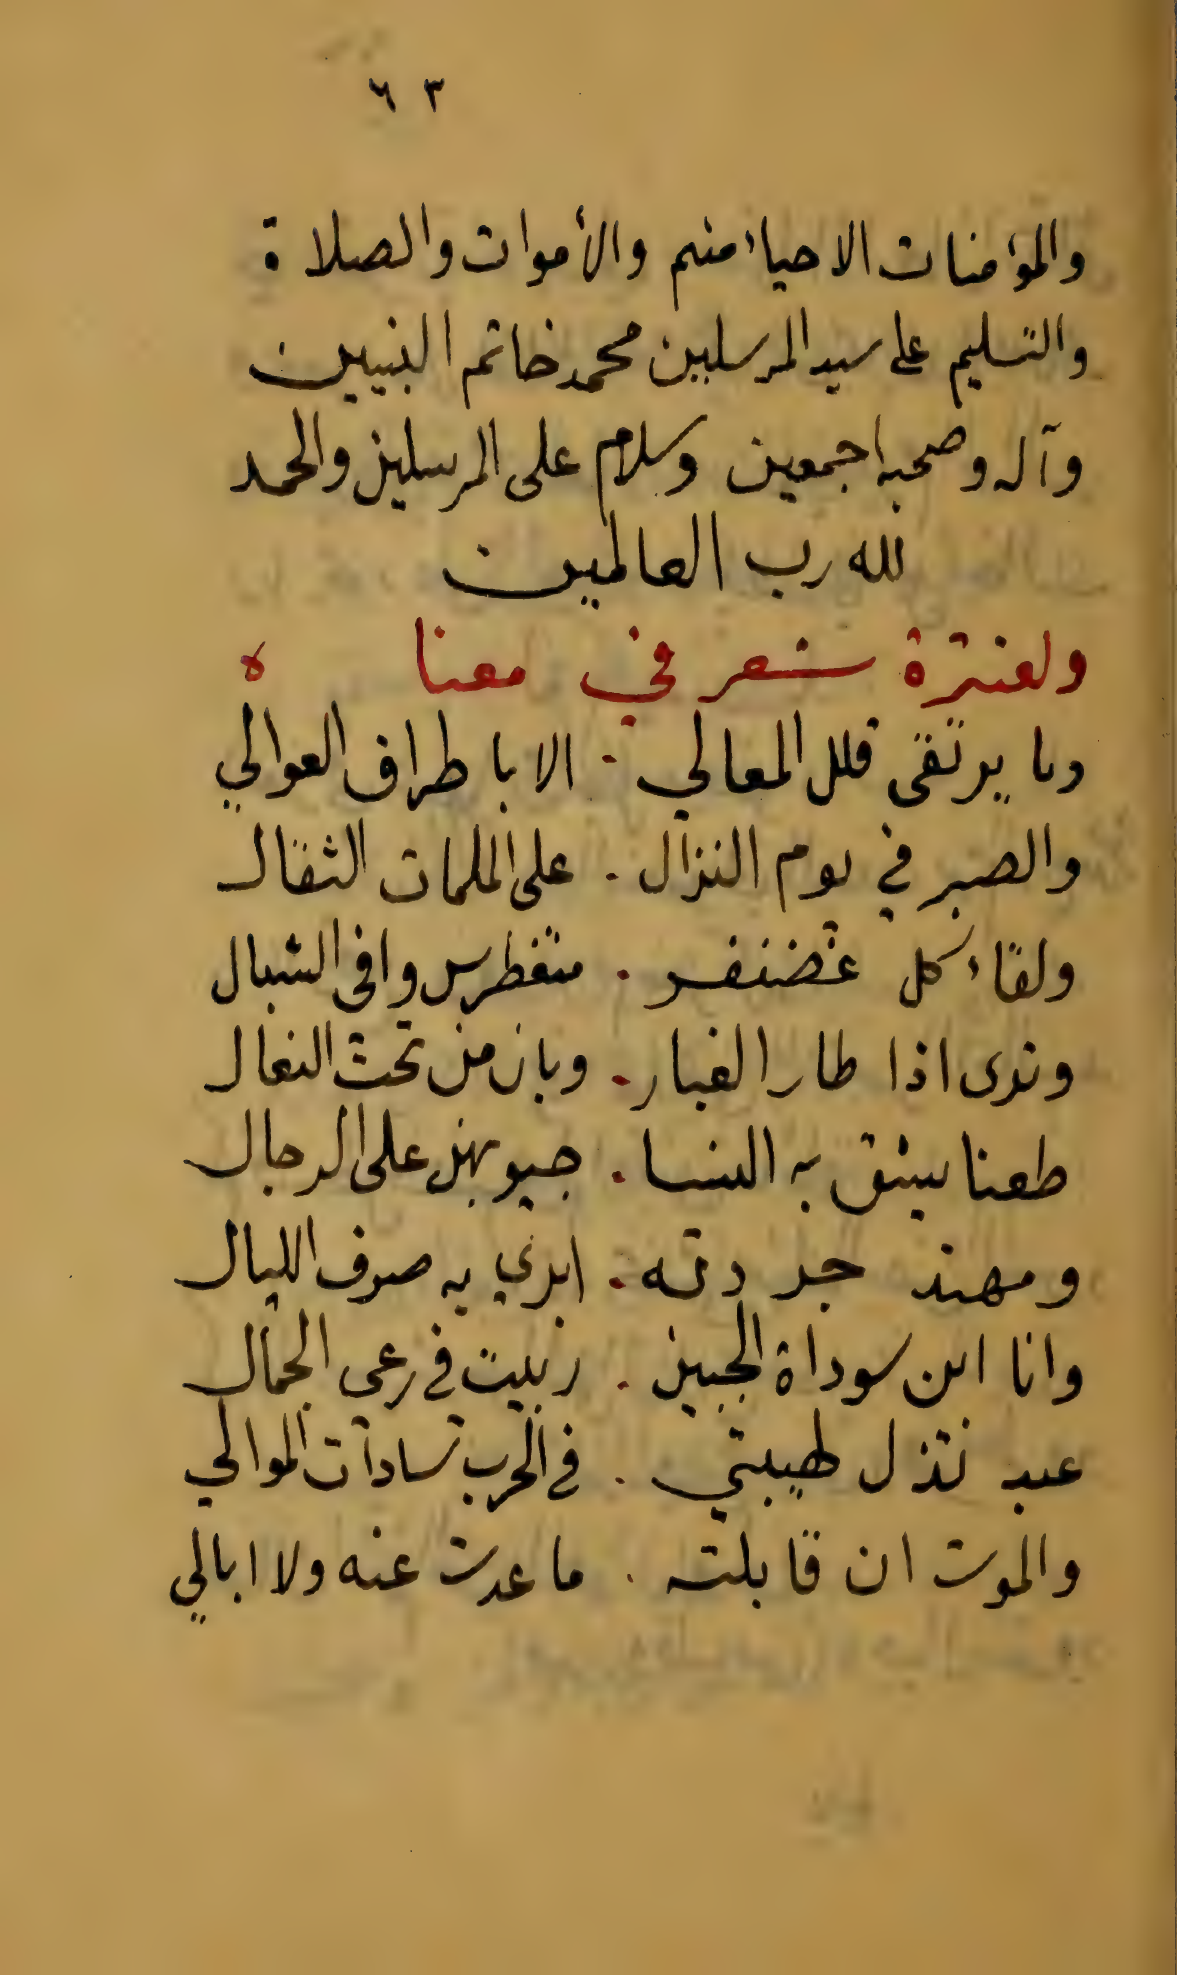 ٦٣
والمؤمنات الاحياء منهم والأموات والصلاة
والتسليم على سيد المرسلين محمد خاتم النبيين
وآله وصحبه اجمعين وسلام على المرسلين والحمد
لله رب العالمين
ولعنترة شعر في معناه
وما يرتقى قلل المعالي . الا باطراف العوالي
والصبر في يوم النزال . على الملمات الثقال
ولقاء كل غضنفر . متغطرس وافى الشبال
وترى اذا طار الغبار . وبان من تحت النعال
طعنا يشق به النسا . جيوبهن على الرجال
ومهند جردته . ابري به صرف الليال
وانا ابن سوداة الجبين . ربيت في رعى الجمال
عبد تذل لهيبتي . في الحرب سادات الموالي
والموت ان قابلته . ما عدت عنه ولا ابالي